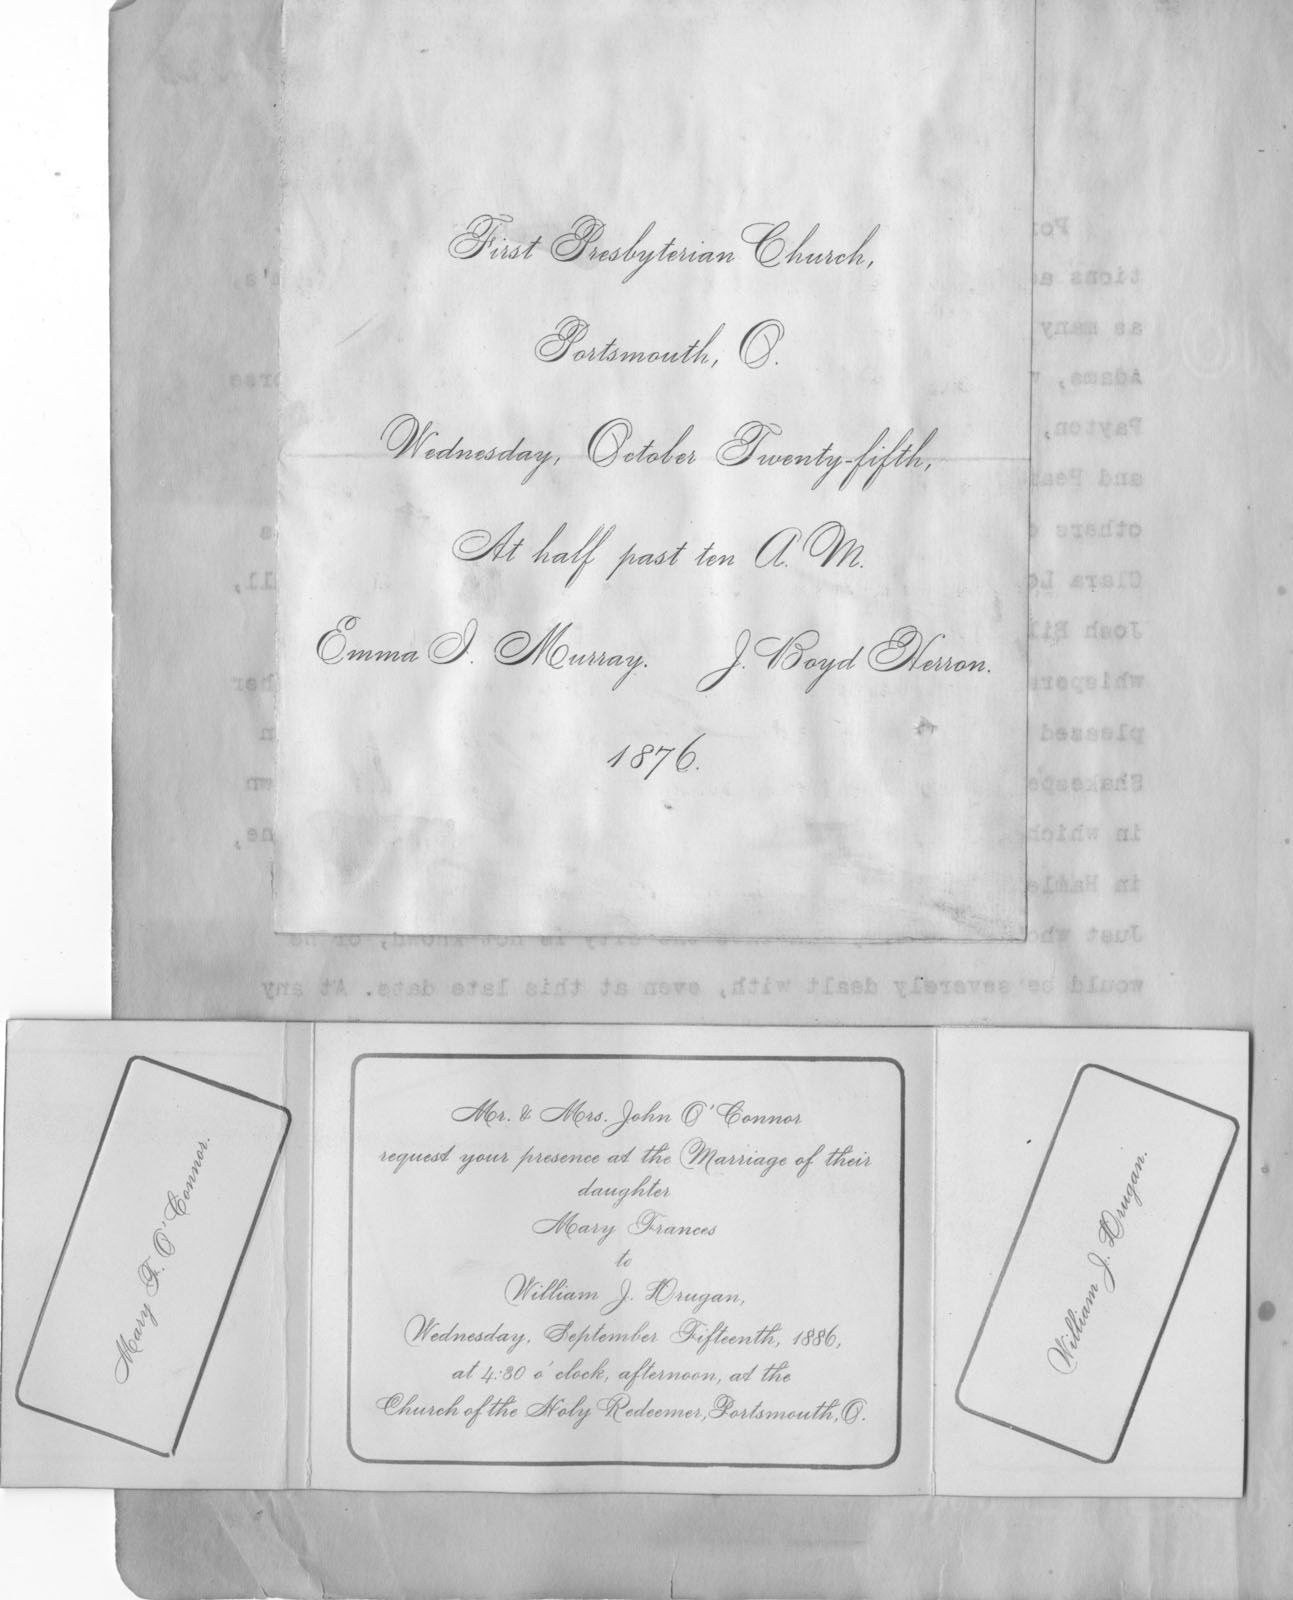 First Presbyterian Church,
Portsmouth, O.
Wednesday, October Twenty-fifth,
At half past ten A. M.
Emma I. Murray. J. Boyd Herron.
1876.
tions
's,
as many
Adams,
orse
Payton,
and
others
s
Clara
ll,
Josh
whispers
her
pleased
n
Shakespe
wn
in which
ne,
in Hamle
Just
city is not known, or he
would be severely dealt with, even at this late date. At any
Mary F. O'Connor.
Mr. & Mrs. John O'Connor
request your presence at the Marriage of their
daughter
Mary Frances
to
William J. Drugan,
Wednesday, September Fifteenth, 1886,
at 4:30 o'clock, afternoon, at the
Church of the Holy Redeemer, Portsmouth, O.
William J. Drugan.